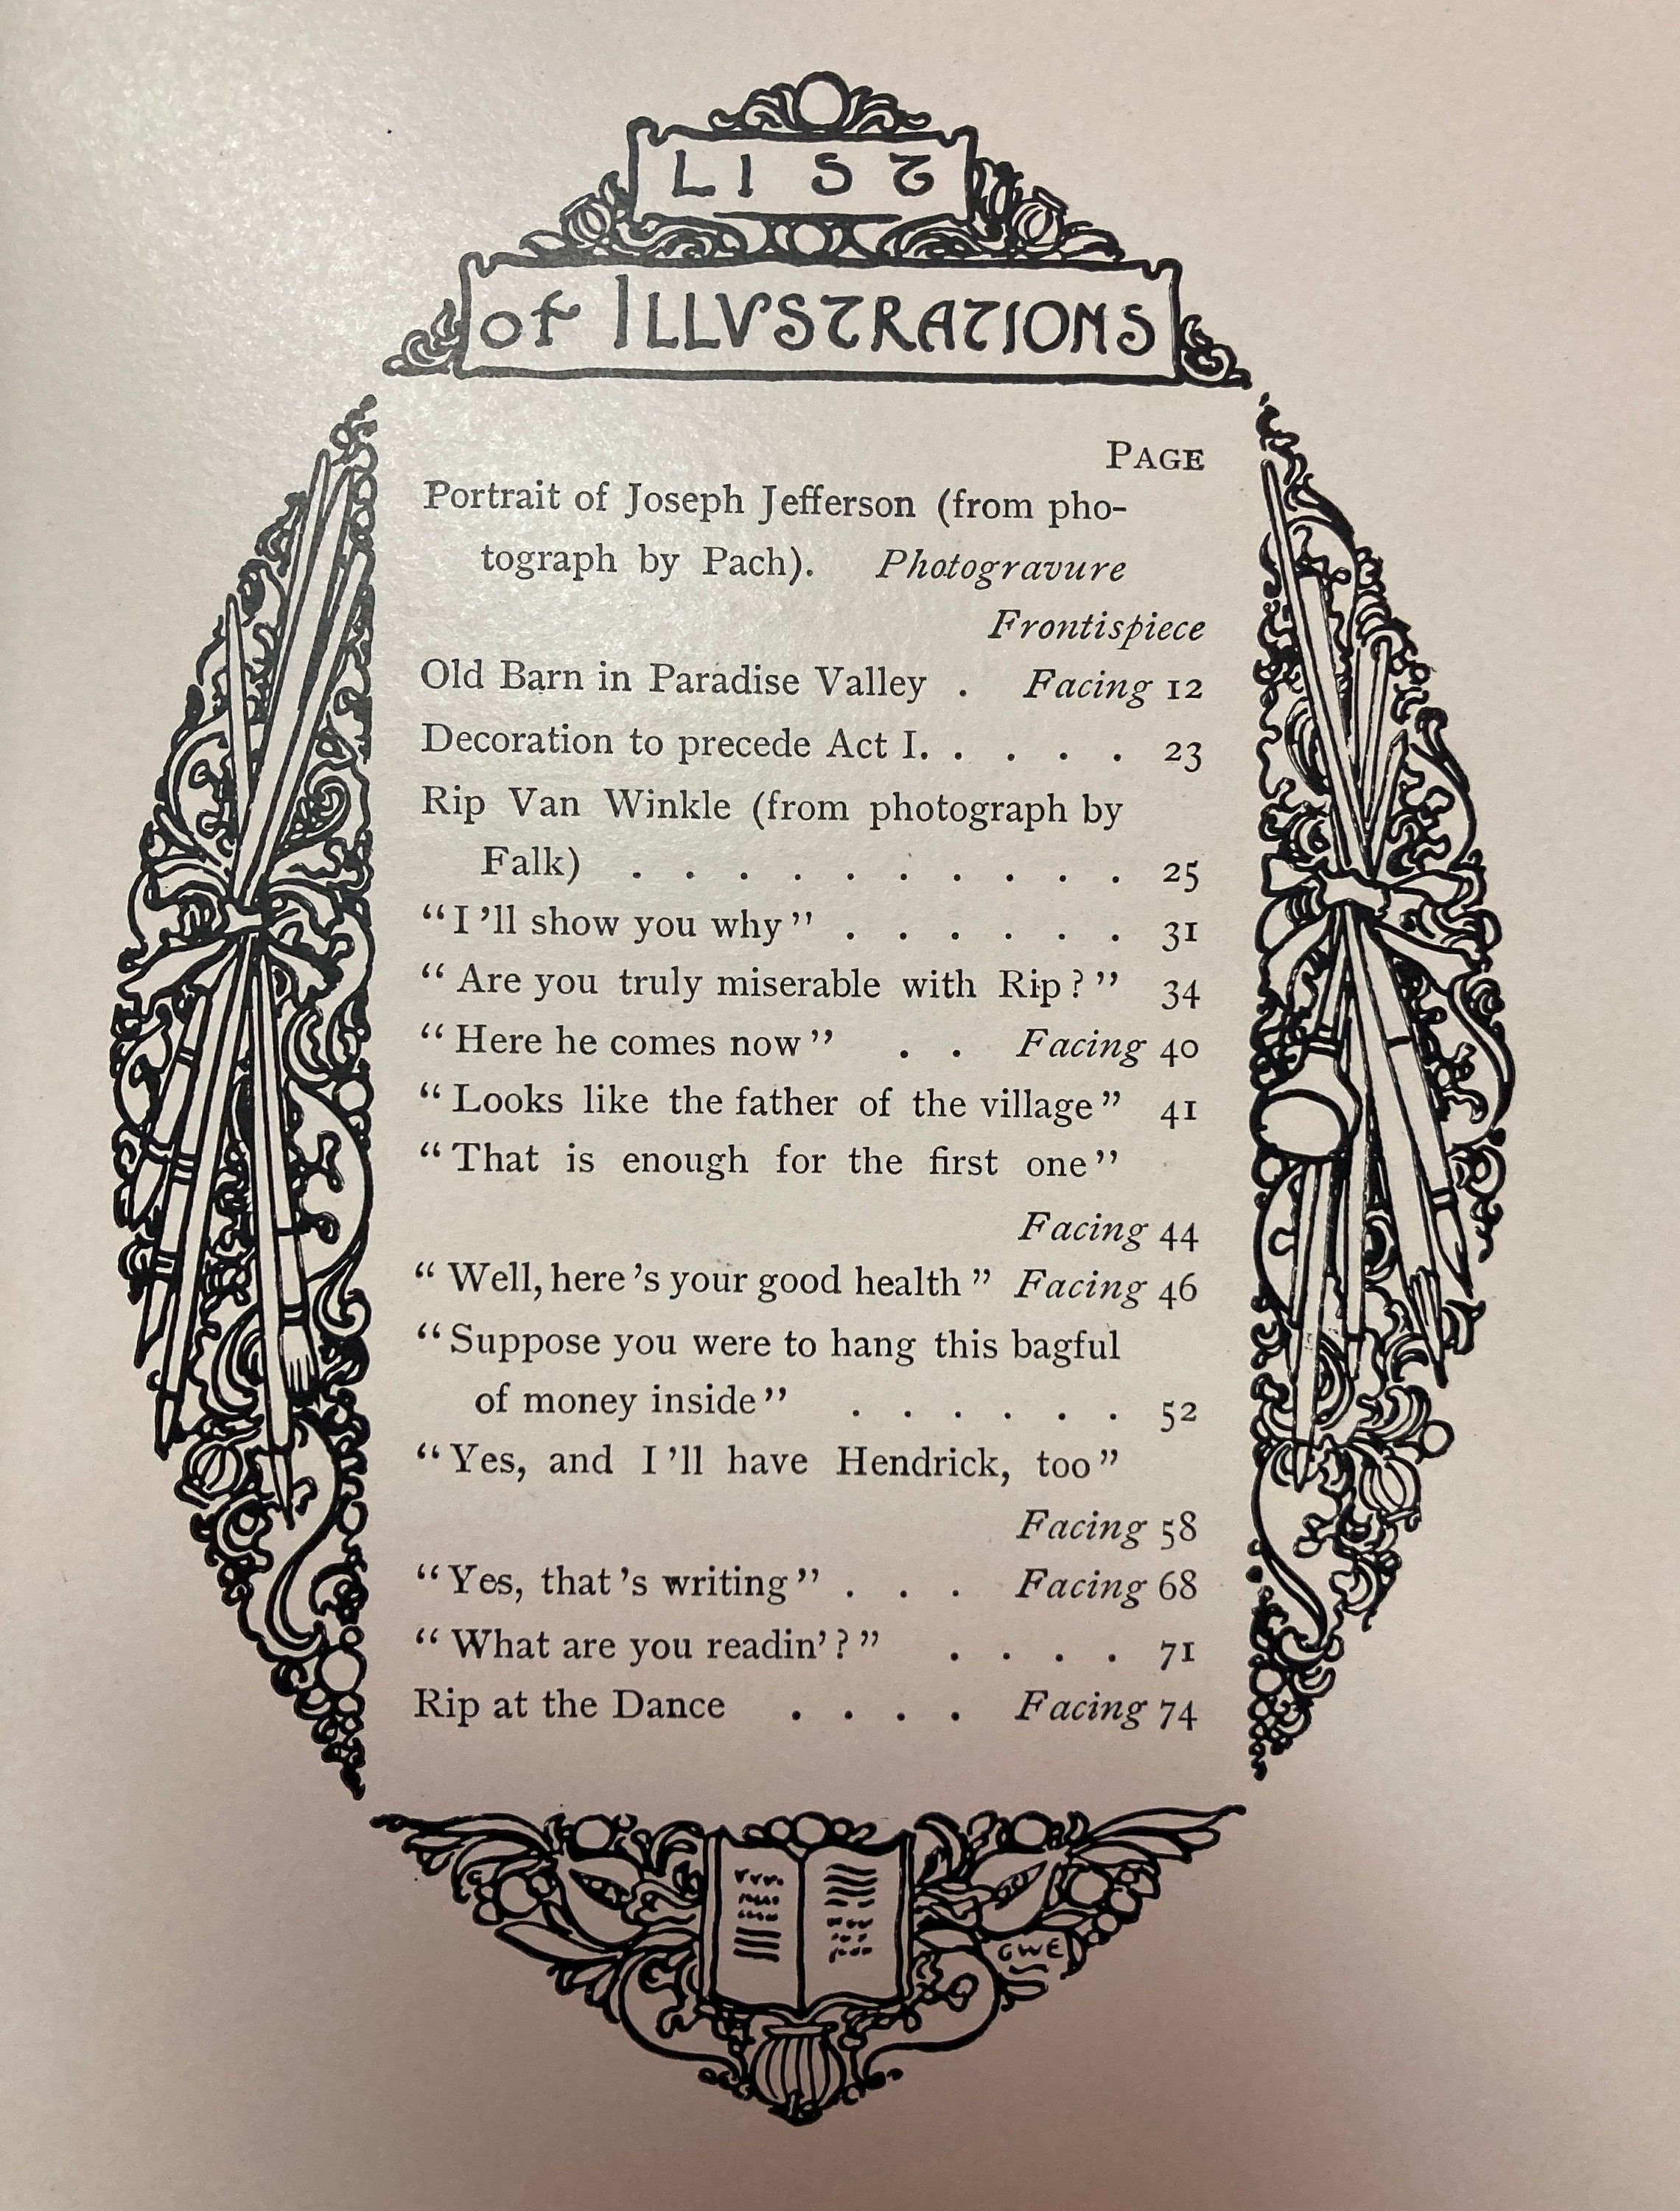 LIST
of ILLVSTRATIONS
PAGE
Portrait of Joseph Jefferson (from pho-
tograph by Pach). Photogravure
Frontispiece
Old Barn in Paradise Valley . Facing 12
Decoration to precede Act I. . . . . 23
Rip Van Winkle (from photograph by
Falk) . . . . . . . . . . 25
“I ’ll show you why” . . . . . . 31
“Are you truly miserable with Rip?” 34
“Here he comes now” . . Facing 40
“Looks like the father of the village” 41
“That is enough for the first one”
Facing 44
“Well, here ’s your good health” Facing 46
“Suppose you were to hang this bagful
of money inside” . . . . . . 52
“Yes, and I ’ll have Hendrick, too”
Facing 58
“Yes, that ’s writing” . . . Facing 68
“What are you readin’?” . . . . 71
Rip at the Dance . . . . Facing 74
GWE